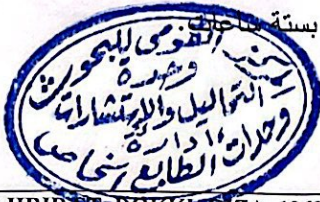 بستة ساعات
المركز القومي للبحوث
وحدة
التحاليل والاستشارات
إدارة
وحدات الطابع الخاص